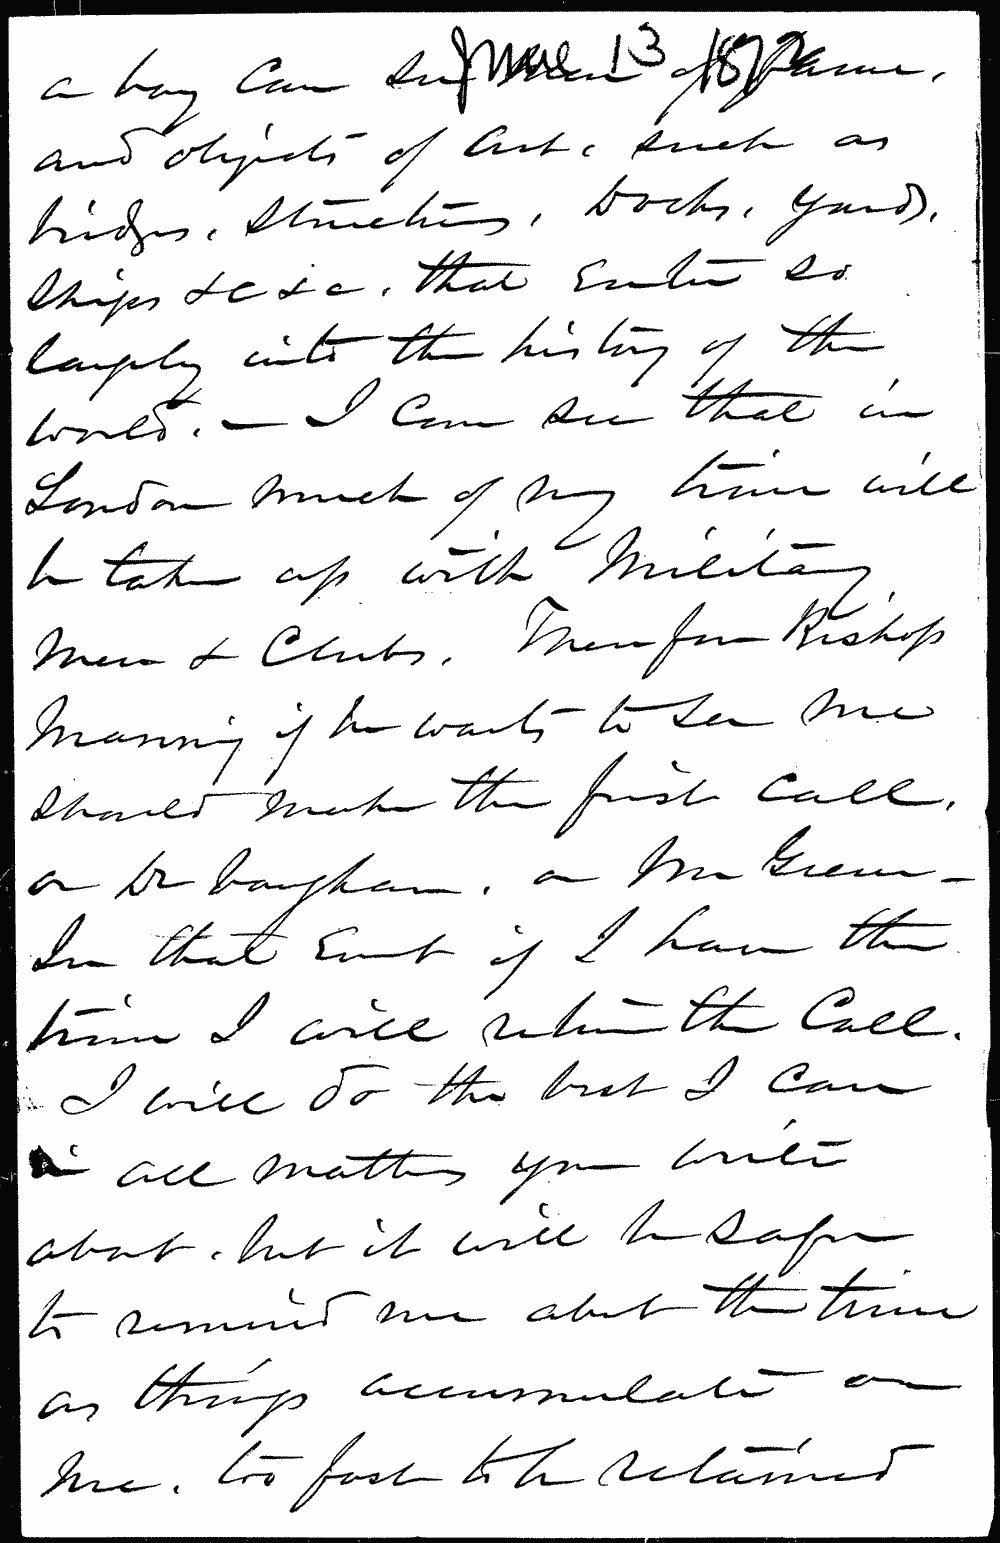 June 13 1872
a boy can see men of fame,
and objects of art, such as
bridges, structures, docks, yards,
ships &c &c, that enter so
largely into the history of the
world. — I can see that in
London much of my time will
be taken up with Military
Men & Clubs. Therefore Bishop
Manning if he wants to see me
should make the first call,
or Dr Vaughan, or Mr Green –
In that event if I have the
time I will return the Call.
I will do the best I can
in all matters you write
about, but it will be safer
to remind me about the time
as things accumulate on
me, too fast to be retained